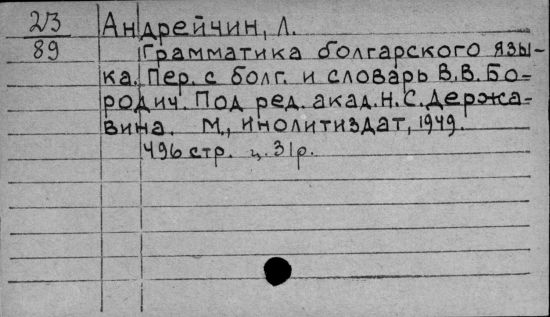 23
89
Андрейчин, Л.
Грамматика болгарского язы-
ка. Пер. с болг. и словарь В.В. Бо-
родич. Под ред. акад. Н.С. Держа-
вина. М., инолитиздат, 1949.
496 стр. ц. 31р.